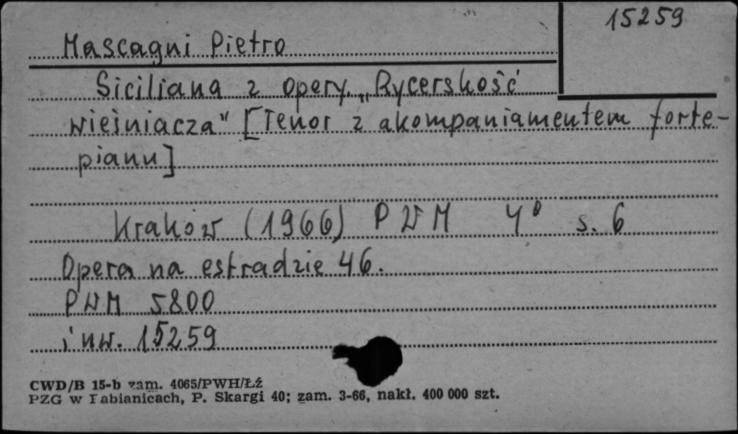 15259
Mascagni Pietro
Siciliana z opery „Rycerskość
wieśniacza" [Tenor z akompaniamentem forte-
pianu]
Kraków (1966) PWM 4° s. 6
Opera na estradzie 46.
PWM 5800
inw. 15259
CWD/B 15-b zam. 4065/PWH/Łź
PZG w Pabianicach, P. Skargi 40; zam. 3-66, nakł. 400 000 szt.